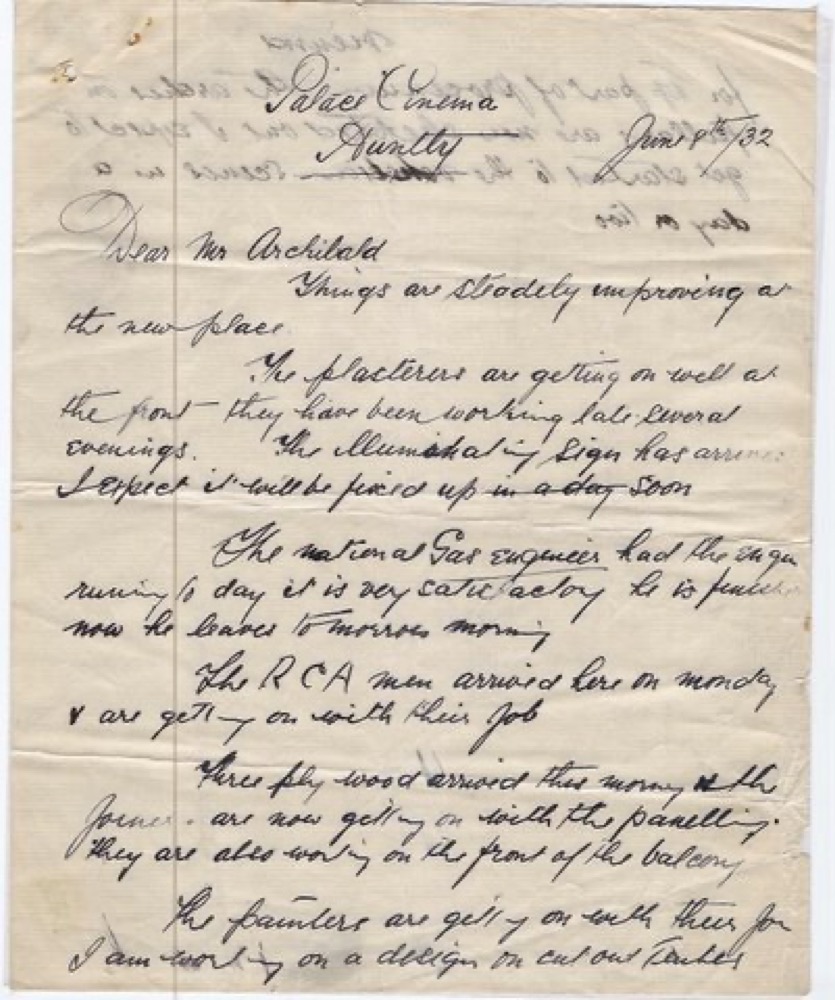 Palace Cinema
Huntly June 8th/32
Dear Mr Archibald
Things are steadely improving at
the new place.
The plasterers are getting on well at
the front they have been working late several
evenings. The Illuminating Sign has
I expect it will be fixed up in a day soon
The national Gas engineer had the
runing to day it is very satisfactory he is
now he leaves tomorrow morning
The RCA men arrived here on monday
& are getting on with their job
Three ply wood arrived this morning & the
are now getting on with the panelling.
They are also working on the front of the balcony
The painters are getting on with their
I am working on a design on cut out